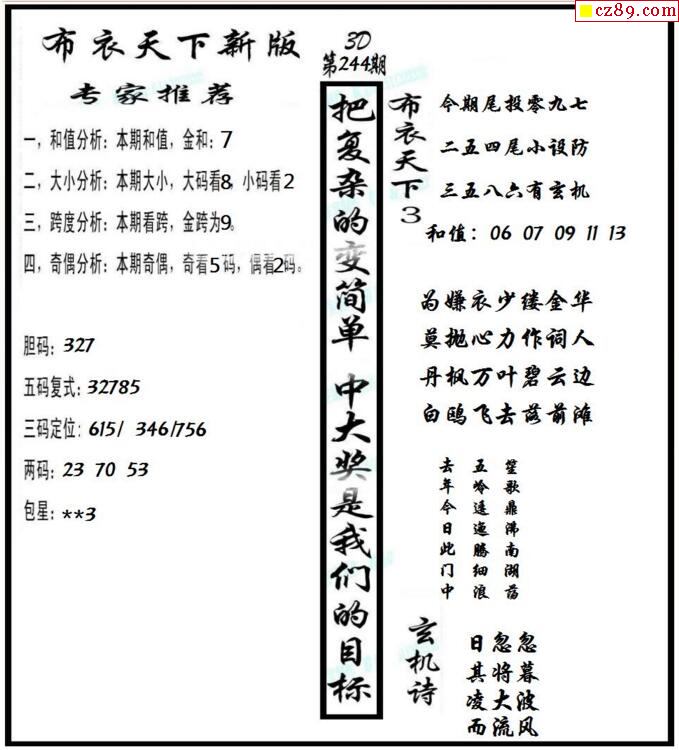 cz89.com
布衣天下新版
专家推荐
一，和值分析：本期和值，金和：7
二，大小分析：本期大小，大码看8，小码看2
三，跨度分析：本期看跨，金跨为9。
四，奇偶分析：本期奇偶，奇看5码，偶看2码。
胆码：327
五码复式：32785
三码定位：615/ 346/756
两码：23 70 53
包星：**3
3D
第244期
把复杂的变简单 中大奖是我们的目标
布衣天下3
今期尾投零九七
二五四尾小设防
三五八六有玄机
和值：06 07 09 11 13
为嫌衣少缕金华
莫抛心力作词人
丹枫万叶碧云边
白鸥飞去落前滩
笙歌鼎沸南湖荡
五岭逶迤腾细浪
去年今日此门中
玄机诗
忽暮波风
忽将大流
日其凌而